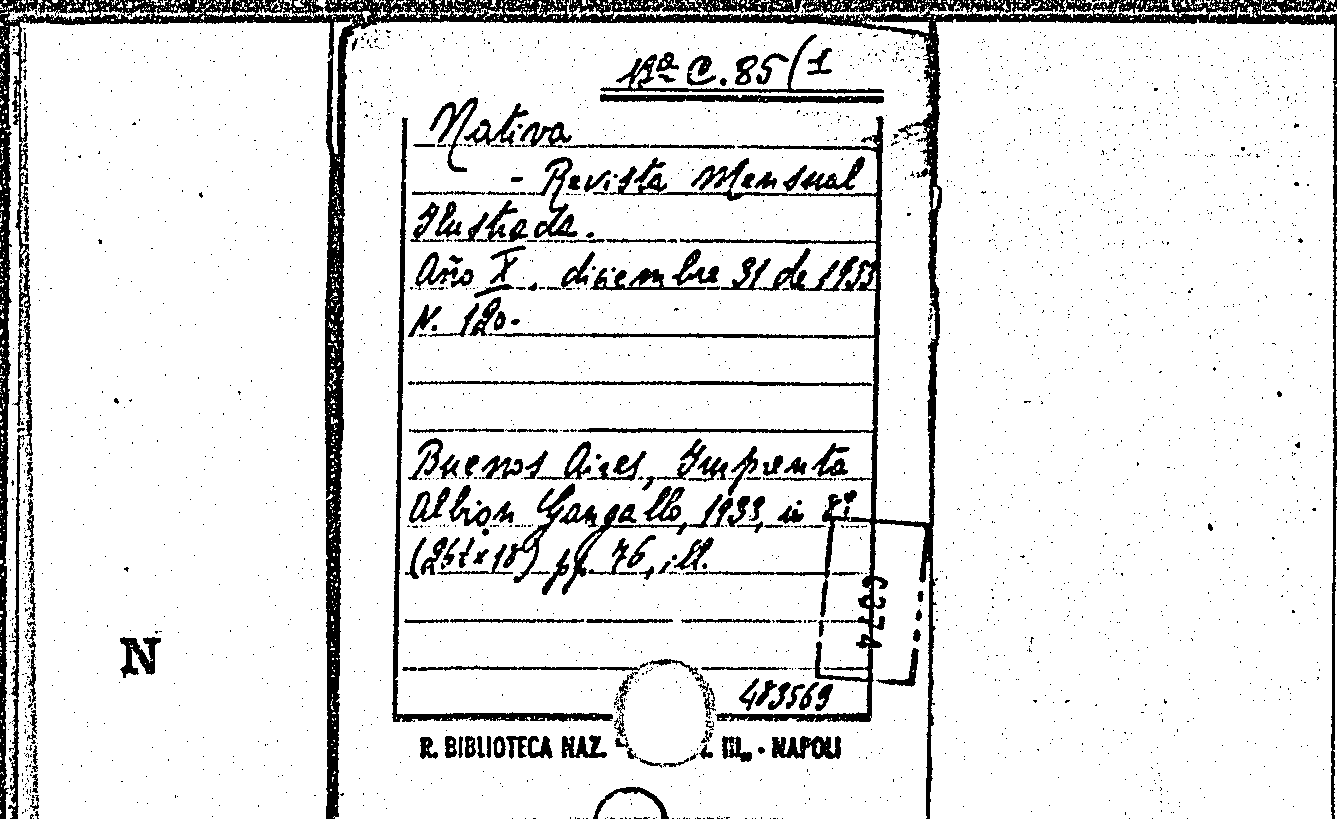 19ª C.85(1
Nativa
- Revista Mensual
Ilustrada.
Año X, diciembre 31 de 1933
N. 120-
Buenos Aires, Imprenta
Albion Gangallo, 1933, in 8º
pp. 76, ill.
483569
R. BIBLIOTECA NAZ. III„ • NAPOLI
N